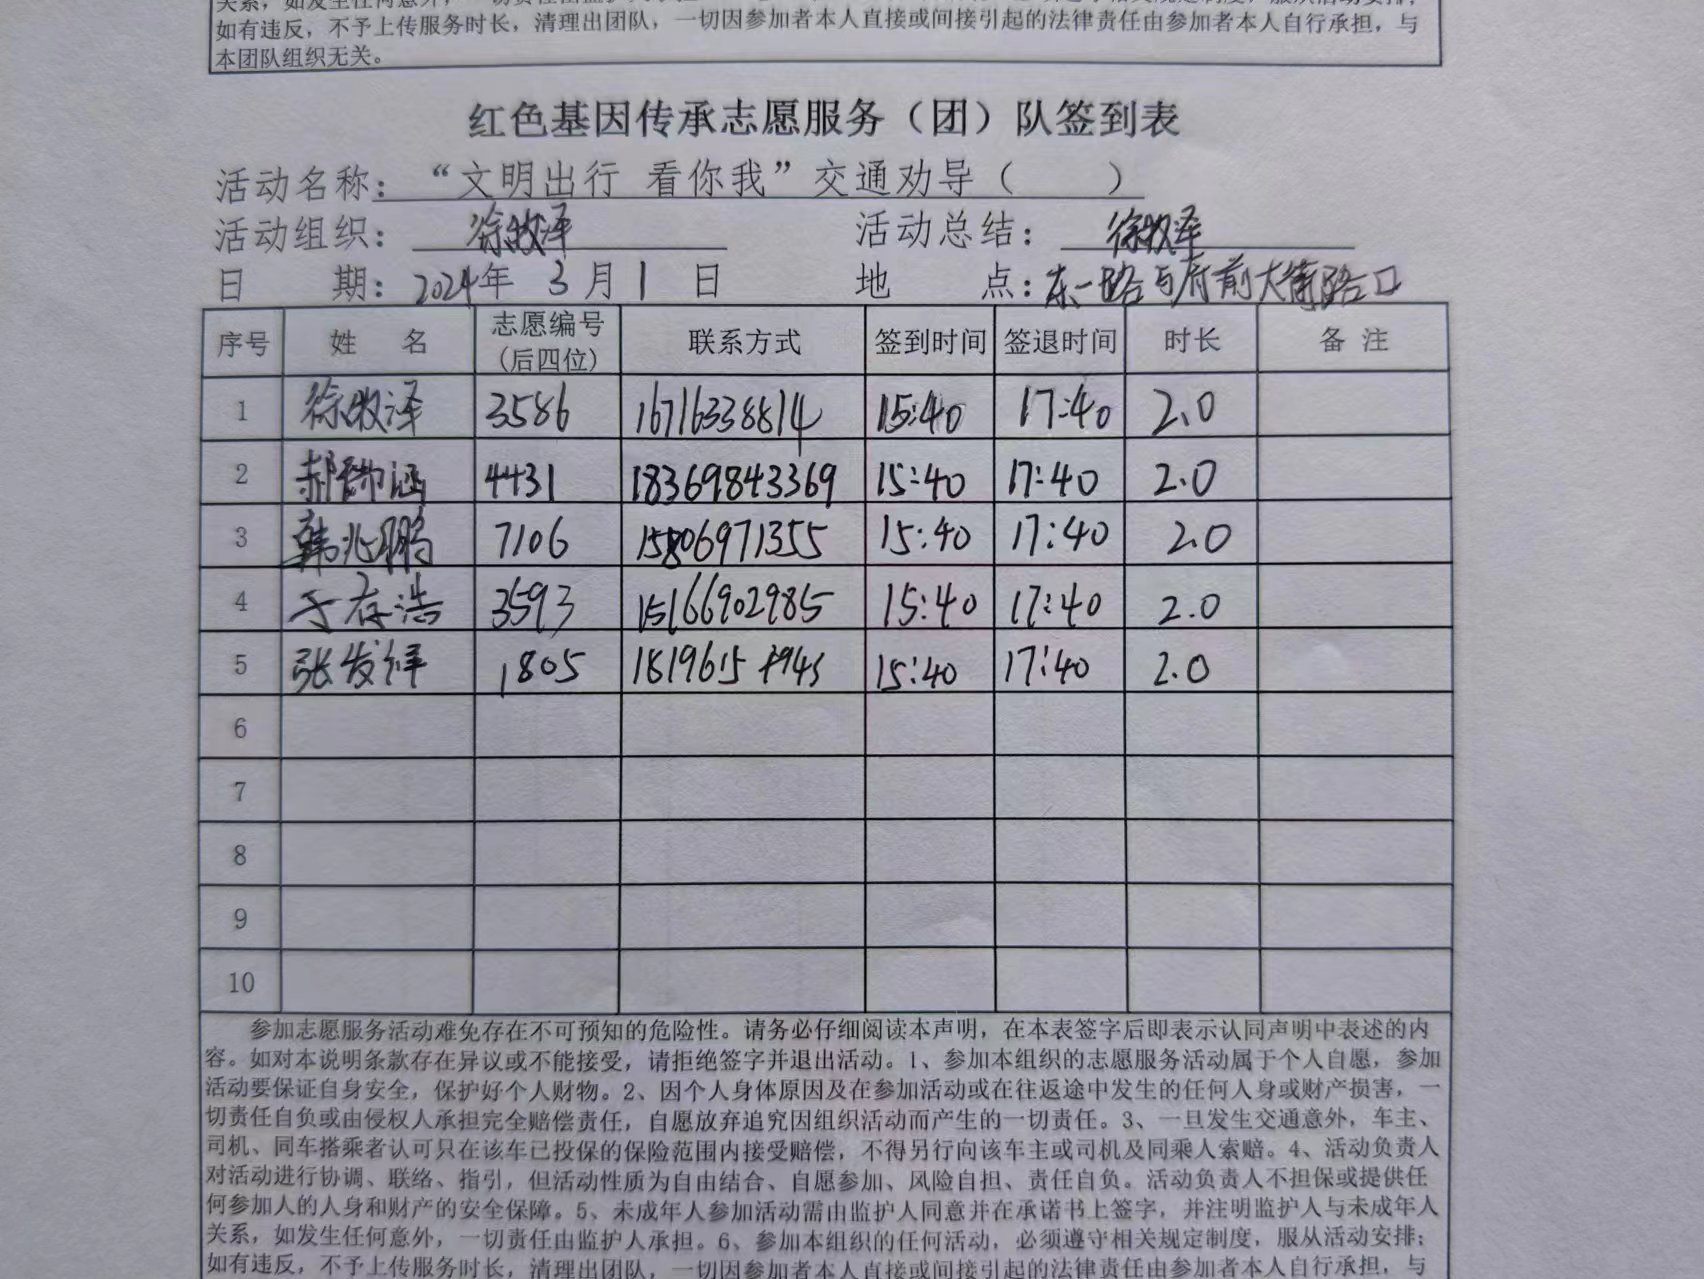 如有违反，不予上传服务时长，清理出团队，一切因参加者本人直接或间接引起的法律责任由参加者本人自行承担，与
本团队组织无关。
红色基因传承志愿服务（团）队签到表
活动名称：“文明出行 看你我”交通劝导（ ）
活动组织：徐牧泽 活动总结：徐牧泽
日 期：2024年 3月1日 地 点：东一路与府前大街路口
序号 姓 名 志愿编号（后四位） 联系方式 签到时间 签退时间 时长 备 注
1 徐牧泽 3586 16716338814 15:40 17:40 2.0
2 郝 涵 4431 18369843369 15:40 17:40 2.0
3 韩兆鹏 7106 15806971355 15:40 17:40 2.0
4 于存浩 3593 15166902985 15:40 17:40 2.0
5 张发祥 1805 15:40 17:40 2.0
6
7
8
9
10
参加志愿服务活动难免存在不可预知的危险性。请务必仔细阅读本声明，在本表签字后即表示认同声明中表述的内
容。如对本说明条款存在异议或不能接受，请拒绝签字并退出活动。1、参加本组织的志愿服务活动属于个人自愿，参加
活动要保证自身安全，保护好个人财物。2、因个人身体原因及在参加活动或在往返途中发生的任何人身或财产损害，一
切责任自负或由侵权人承担完全赔偿责任，自愿放弃追究因组织活动而产生的一切责任。3、一旦发生交通意外，车主、
司机、同车搭乘者认可只在该车已投保的保险范围内接受赔偿，不得另行向该车主或司机及同乘人索赔。4、活动负责人
对活动进行协调、联络、指引，但活动性质为自由结合、自愿参加、风险自担、责任自负。活动负责人不担保或提供任
何参加人的人身和财产的安全保障。5、未成年人参加活动需由监护人同意并在承诺书上签字，并注明监护人与未成年人
关系，如发生任何意外，一切责任由监护人承担。6、参加本组织的任何活动，必须遵守相关规定制度，服从活动安排；
如有违反，不予上传服务时长，清理出团队，一切因参加者本人直接或间接引起的法律责任由参加者本人自行承担，与